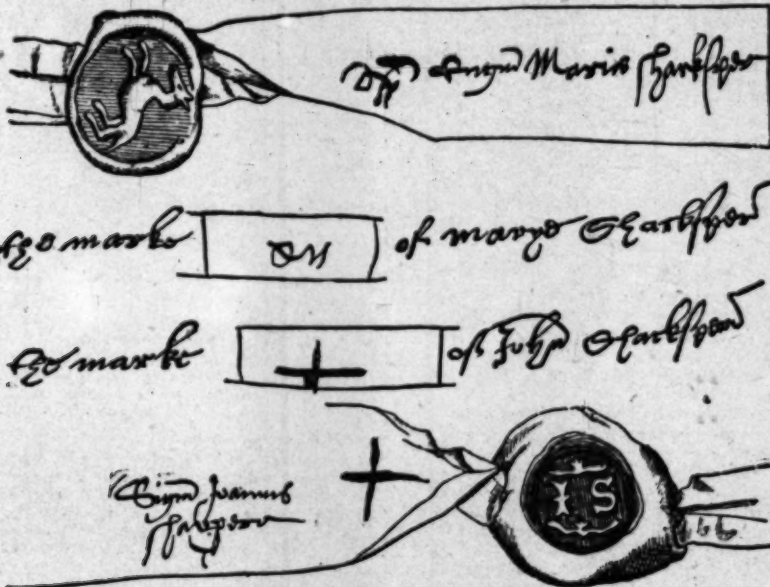 Sigm Marie Shacksper
the marke of marye Shacksper
the marke + of John Shacksper
+
Sigm Joannis
Shaxpere
I S